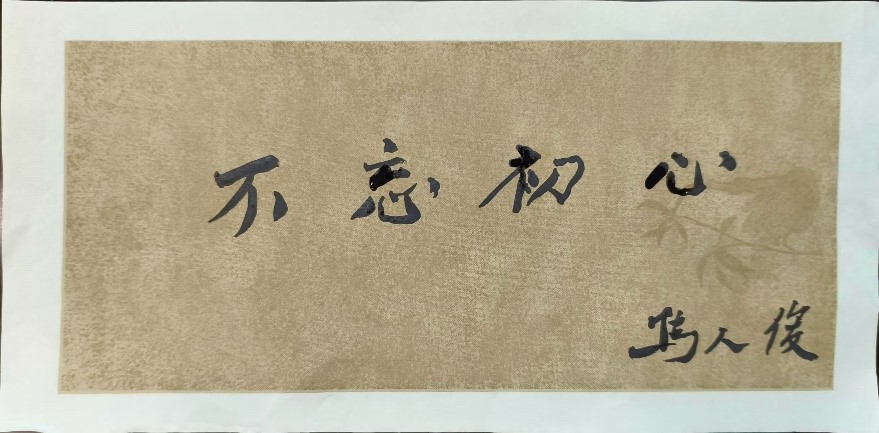 不忘初心
馬人俊